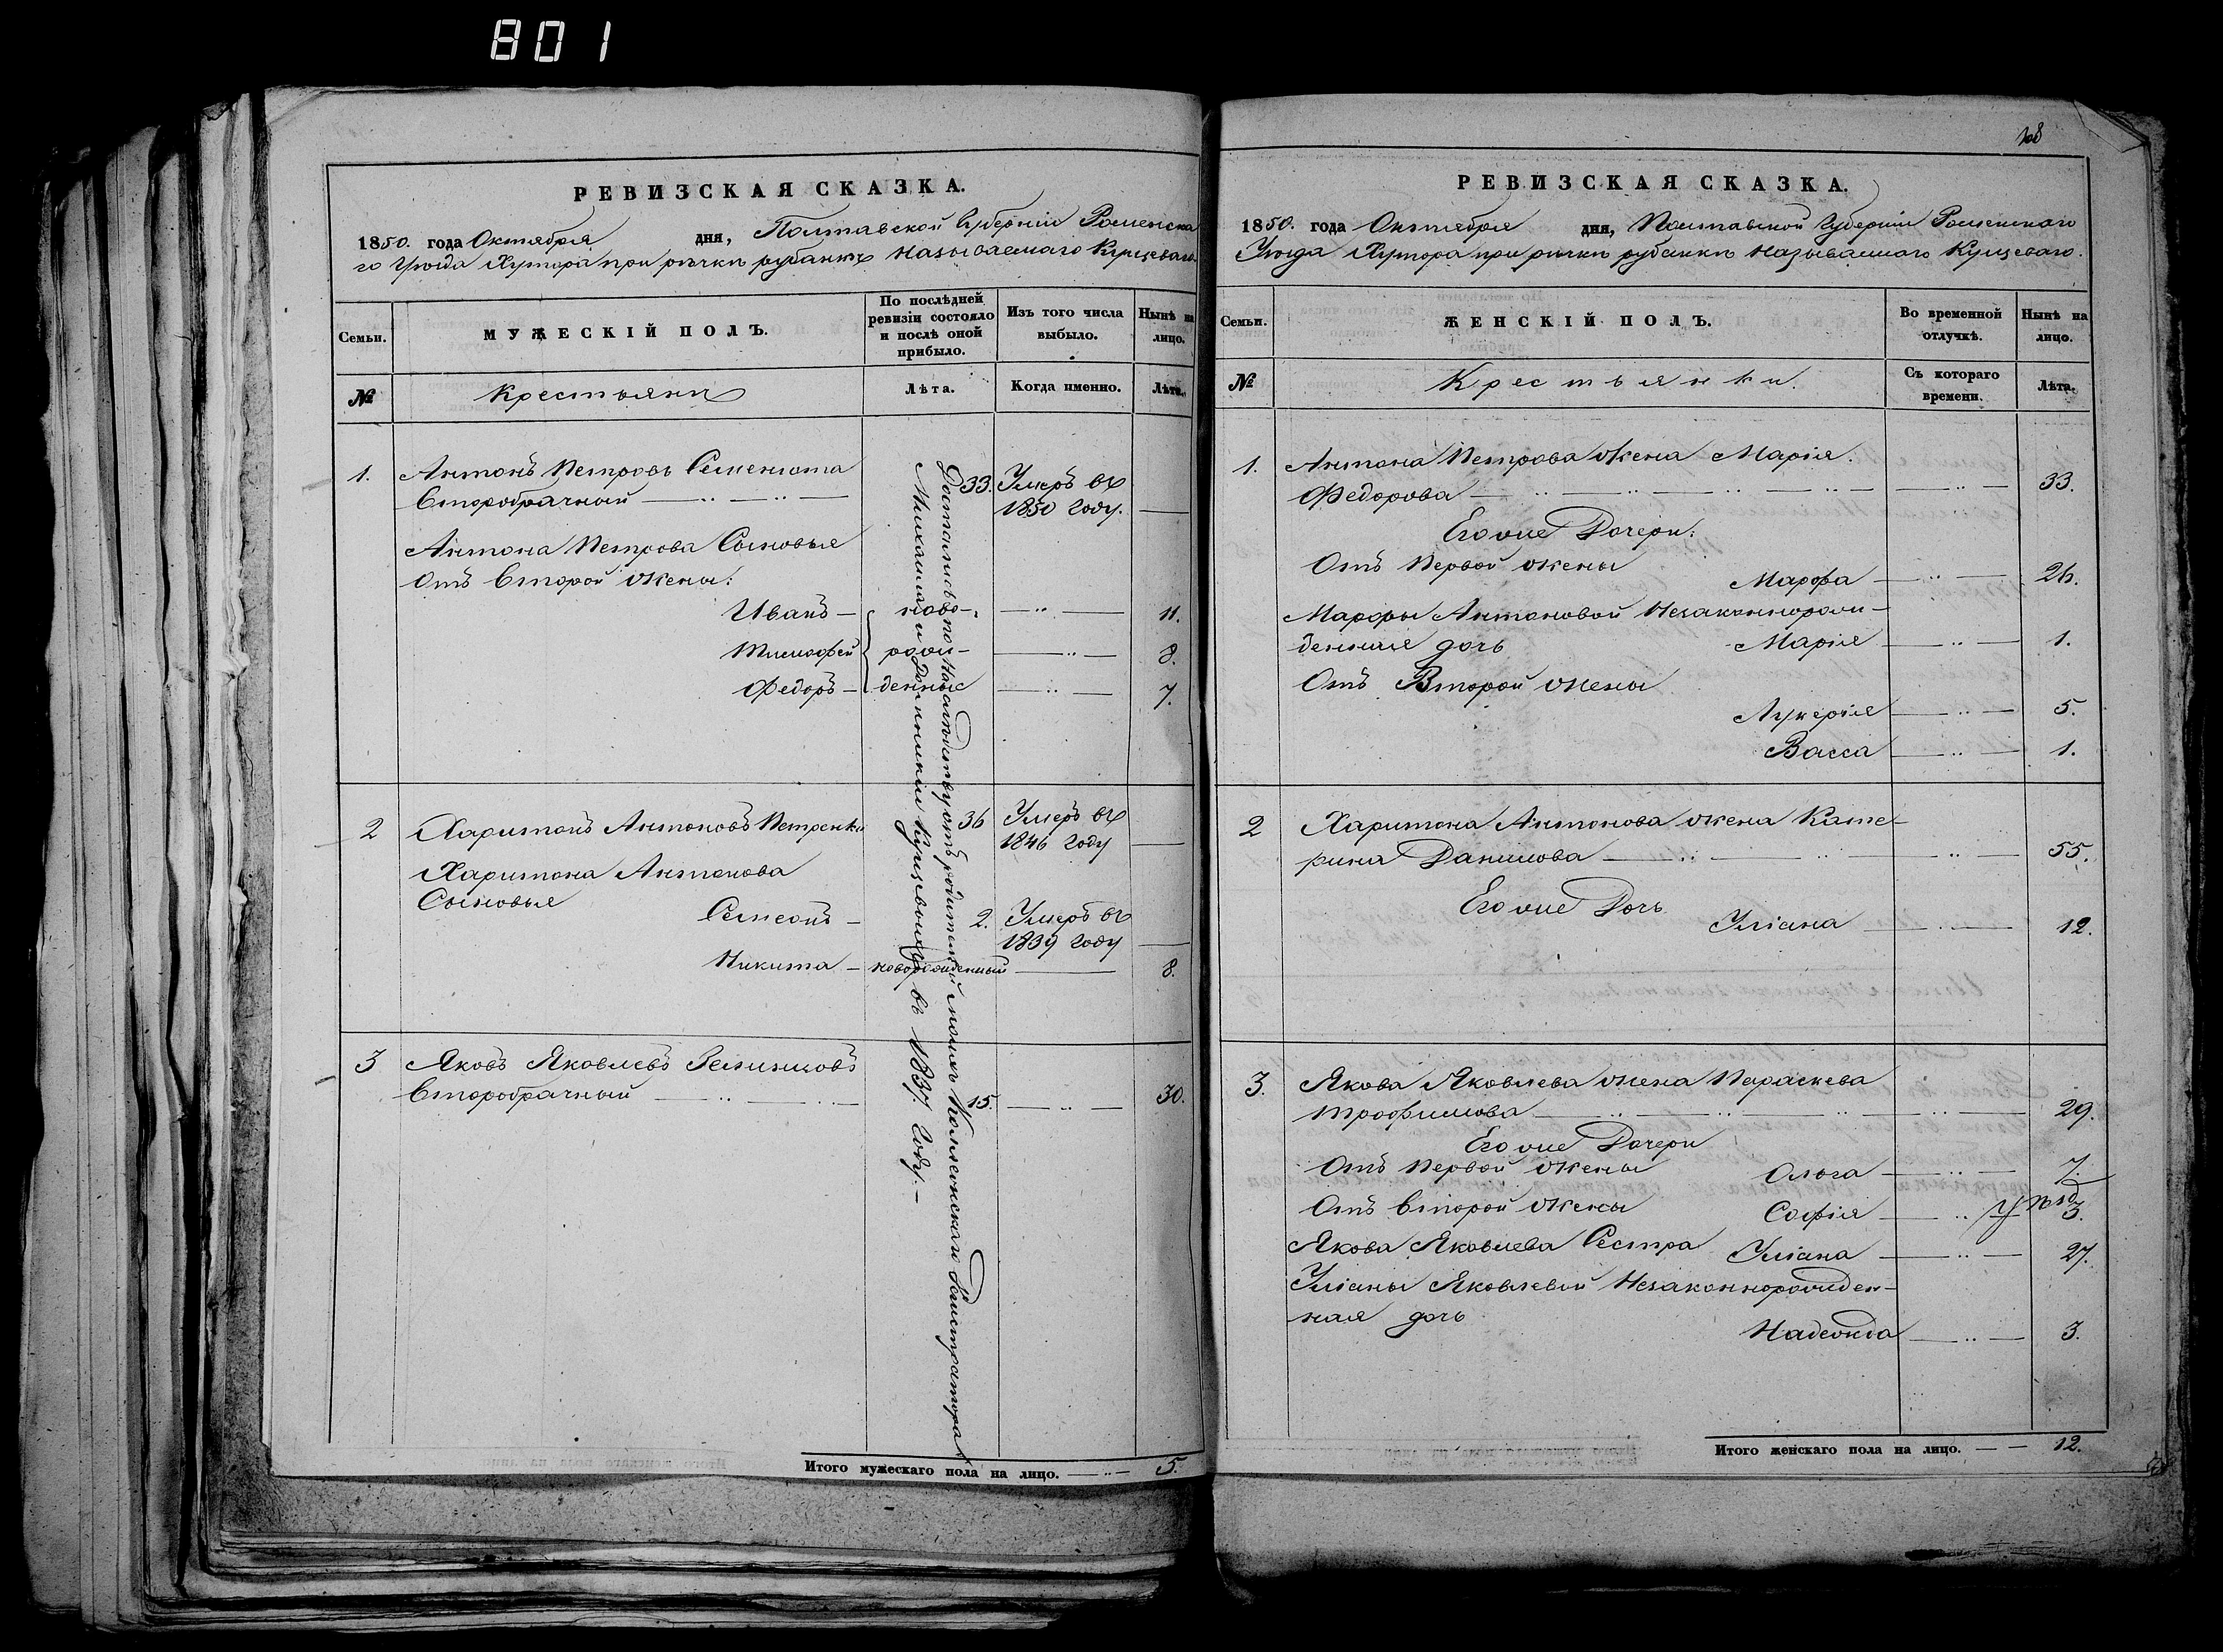 801
РЕВИЗСКАЯ СКАЗКА.
1850. года Октября дня, Полтавской Губерніи Роменска
го Уѣзда Хутора при рѣчкѣ рубанкѣ называемаго Кущеваго.
Семьи.
МУЖЕСКІЙ ПОЛЪ.
По послѣдней ревизіи состояло и послѣ оной прибыло.
Изъ того числа выбыло.
Нынѣ на лицо.
№
Крестьянѣ
Лѣта.
Когда именно.
Лѣта.
1. Антонъ Петровъ Семенюта
Второбрачный 33. Умеръ въ
1850 году.
Антона Петрова Сыновья
Отъ второй жены:
Иванъ — ново- 11.
Тимофей рож- 8.
Федоръ — денные 7.
2 Харитонъ Антоновъ Петренко 36 Умеръ въ
1846 году
Харитона Антонова
Сыновья
Семеонъ — 2. Умеръ въ
1839 году
Никита — новорожденный 8.
3 Яковъ Яковлевъ
Второбрачный 15. 30.
Достались по наслѣдству отъ родителей моихъ Коллежскаго Регистратора
Михаила и Кущевыхъ въ 1837. году. —
Итого мужескаго пола на лицо. 5.
108
РЕВИЗСКАЯ СКАЗКА.
1850. года Октября дня, Полтавской Губерніи Роменскаго
Уѣзда Хутора при рѣчкѣ рубанкѣ называемаго Кущеваго.
Семьи.
ЖЕНСКІЙ ПОЛЪ.
Во временной отлучкѣ.
Нынѣ на лицо.
№
Крестьянки.
Съ котораго времени.
Лѣта.
1. Антона Петрова жена Марія
Федорова 33.
Его же Дочери:
Отъ Первой жены
Марфа 26.
Марфы Антоновой Незаконнорож-
денная дочь Марія 1.
Отъ Второй жены
Лукерія 5.
Васса 1.
2 Харитона Антонова жена Кате-
рина Данилова 55.
Его же Дочь
Уліана 12.
3. Якова Яковлева жена Параскева
трофимова 29.
Его же Дочери
Отъ Первой жены Ольга 7.
Отъ второй жены Софія 3.
Якова Яковлева Сестра Уліана 27.
Уліаны Яковлевой Незаконнорожден-
ная дочь
Надежда 3.
Итого женскаго пола на лицо. — — 12.